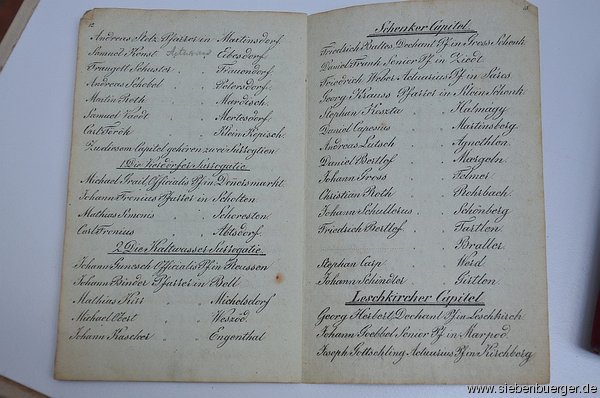 12
Andreas Stolz Pfarrer in Martinsdorf.
Samuel Konst " " Eibesdorf
Traugott Schuster " " Frauendorf
Andreas Schobel " " Petersdorf
Martin Roth " " Mardisch.
Samuel Vaidt " " Mertesdorf.
Carl Török " " Klein Kopisch.
Zu diesem Capitel gehören zwei Surrogtien
1 Die Surrogatie.
Michael Grail, Officialis Pf in Donersmarkt.
Johann Fronius Pfarrer in Scholten
Mathias Simonis " " Schoresten
Carl Fronius " " Abtsdorf.
2 Die Kaltwasser Surrogatie.
Johann Gunesch Officialis Pf in Reussen
Johann Binder Pfarrer in Bell
Mathias Kirr " " Michelsdorf
Michael Obert " " Weszöd.
Johann Kascher " " Engenthal
13
Schenker Capitel.
Friedrich Baltes, Dechant Pf in Gross Schenk
Daniel Frank Senior Pf in Ziedt
Friedrich Weber Actuarius Pf in Sáros
Georg Krauss Pfarrer in Klein Schenk
Stephan Kuszta " Halmágy
Daniel Capesius " Martinsberg
Andreas Lutsch " Agnethlen
Daniel Bertlef " Margeln.
Johann Gross " Felmer
Christian Roth " Rohrbach.
Johann Schullerus " Schönberg
Friedrich Bertlef " Tartlen
" Braller.
Stephan Carp " Werd
Johann Schindler " Girtlen.
Leschkircher Capitel.
Georg Herbert, Dechant Pf in Leschkirch
Johann Goebbel Senior Pf in Marpod
Joseph Gottschling Actuarius Pf in Kirchberg
www.siebenbuerger.de